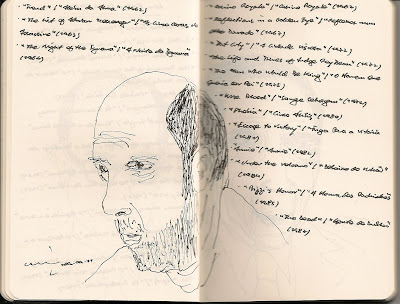 "Freud" / "Além da Alma" (1962)
"The List of Adrian Messenger" / "As Cinco Caras do
(1963)
"The Night of the Iguana" / "A Noite da Iguana"
(1964)
"Casino Royale" / "Casino Royale" (1967)
"Reflections in a Golden Eye" / "Reflexos num
Olho Dourado" (1967)
"Fat City" / "A Cidade" (1972)
"The Life and Times of Judge Roy Bean" / (1972)
"The Man Who Would Be King" / "O Homem Que
Queria Ser Rei" (1975)
"Wise Blood" / "Sangue Selvagem" (1979)
"Phobia" / (1980)
"Escape to Victory" / "Fuga Para a Vitória"
"Annie" / "Annie" (1982)
"Under the Volcano" / "Debaixo do Vulcão"
(1984)
"Prizzi's Honor" / "A Honra dos Padrinhos"
(1985)
"The Dead" / "Gente de Dublin"
(1987)